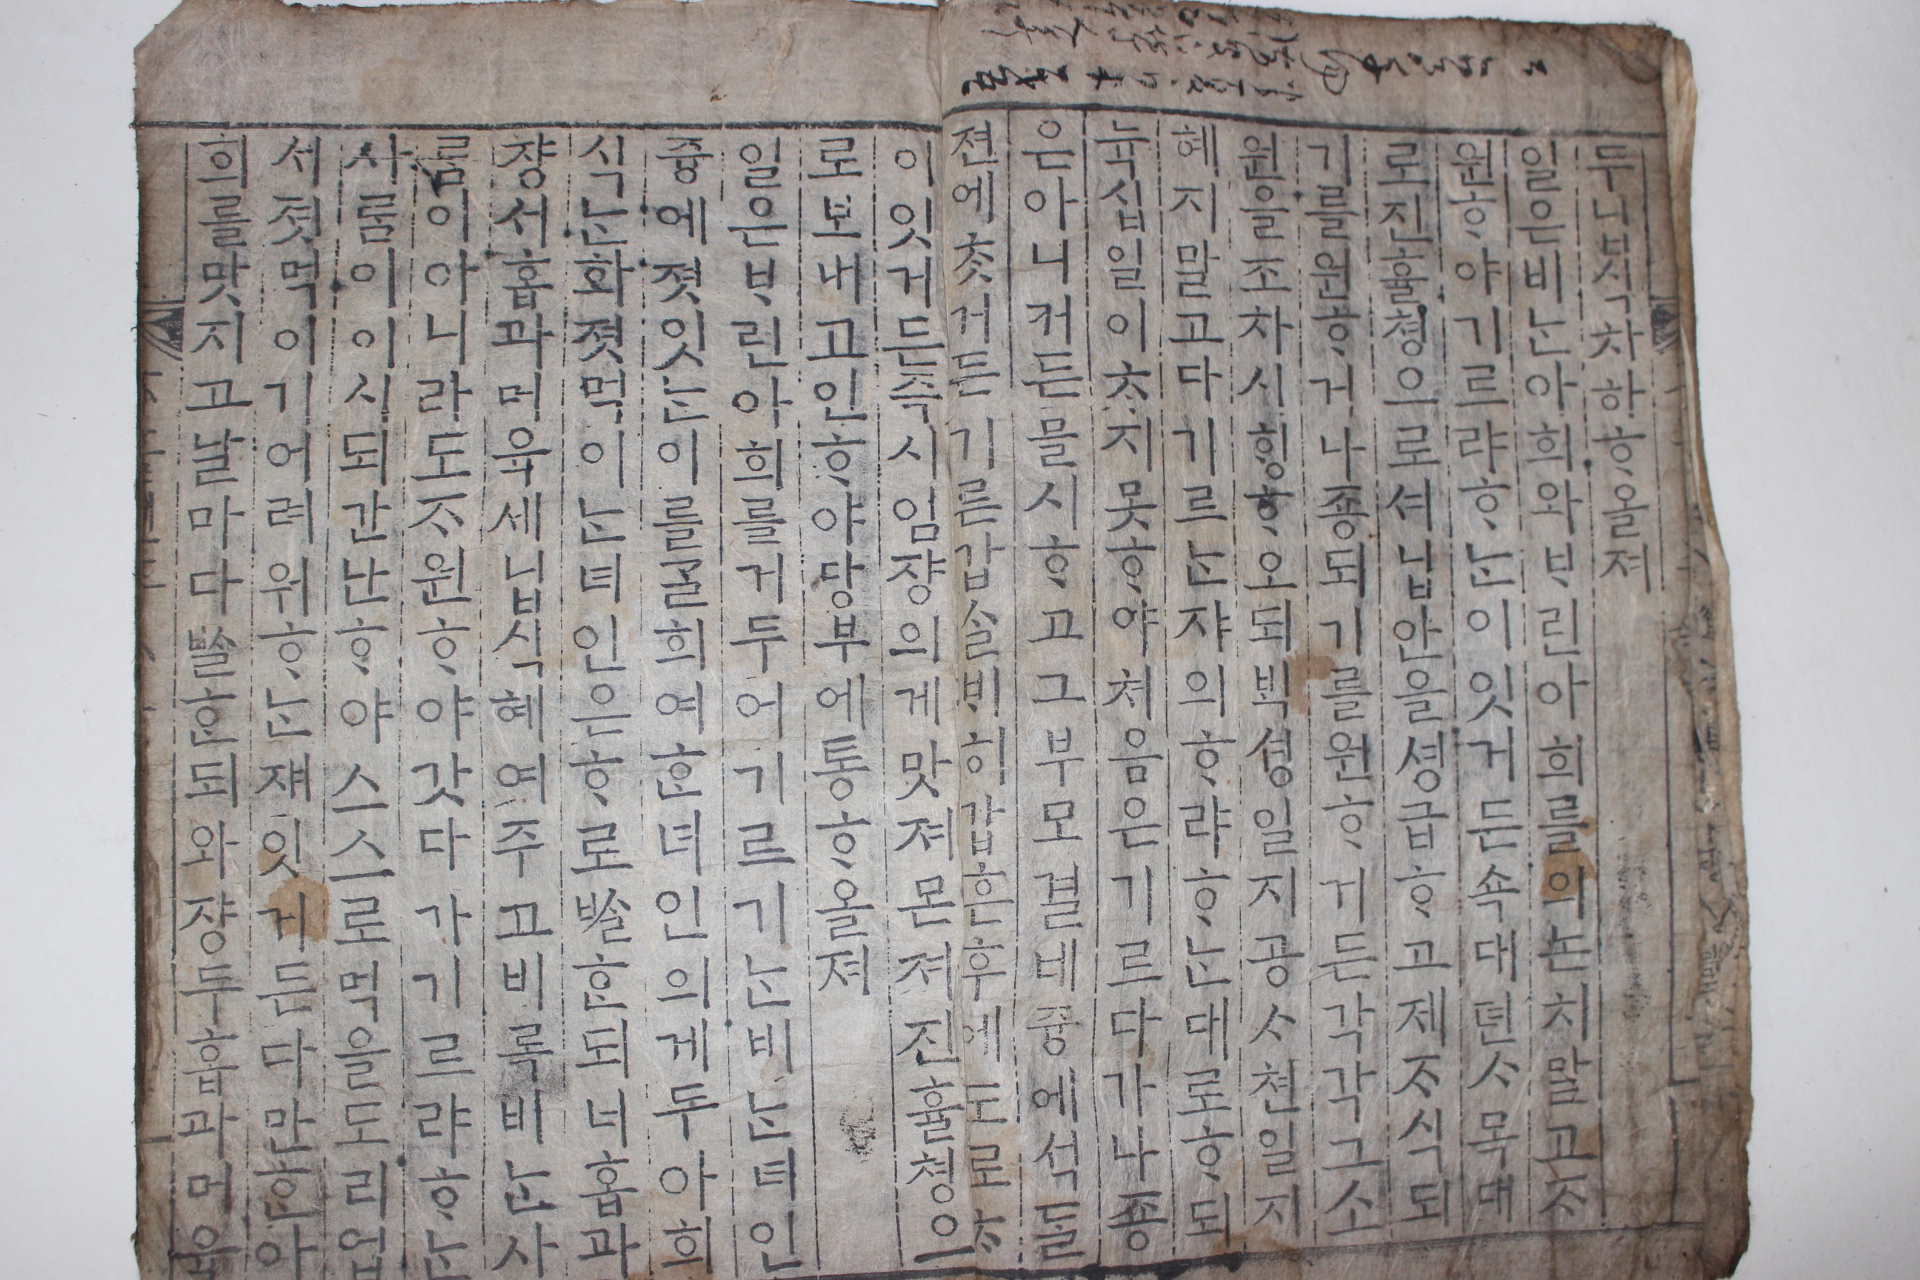 두니식차하ᄒᆞ올져
일은비ᄂᆞᆫ아희와ᄇᆞ린아희를의논치말고ᄌᆞ
원ᄒᆞ야기르랴ᄒᆞᄂᆞᆫ이잇거든쇽대뎐ᄉᆞ목대
로진휼쳥으로셔닙안을셩급ᄒᆞ고제ᄌᆞ식되
기를원ᄒᆞ거나죵되기를원ᄒᆞ거든각각그소
원을조차시ᄒᆡᆼᄒᆞ오되ᄇᆡᆨ셩일지공ᄉᆞ쳔일지
혜지말고다기르ᄂᆞᆫ쟈의ᄒᆞ랴ᄒᆞᄂᆞᆫ대로ᄒᆞ되
뉵십일이ᄎᆞ지못ᄒᆞ야쳐음은기르다가나죵
은아니커든믈시ᄒᆞ고그부모결녜즁에셕ᄃᆞᆯ
젼에ᄎᆞᆺ거든기른갑ᄉᆞᆯᄇᆡ히갑흔후에도로ᄎᆞ
이잇거든즉시임쟝의게맛져몬져진휼쳥으
로보내고인ᄒᆞ야당부에통ᄒᆞ올져
일은ᄇᆞ린아희를거두어기르기ᄂᆞᆫ비ᄂᆞᆫ녀인
즁에졋잇ᄂᆞᆫ이를ᄀᆞᆯ희여ᄒᆞᆫ녀인의게두아희
식ᄂᆞᆫ화졋먹이ᄂᆞᆫ녀인은ᄒᆞ로ᄡᆞᆯᄒᆞᆫ되너홉과
쟝서홉과머육세닙식혜여주고비록비ᄂᆞᆫ사
ᄅᆞᆷ이아니라도ᄌᆞ원ᄒᆞ야갓다가기르랴ᄒᆞᄂᆞᆫ
사ᄅᆞᆷ이이시되간난ᄒᆞ야스스로먹을도리업
서졋먹이기어려워ᄒᆞᄂᆞᆫ쟤잇거든다만ᄒᆞᆫ아
희를맛지고날마다ᄡᆞᆯᄒᆞᆫ되와쟝두홉과머육